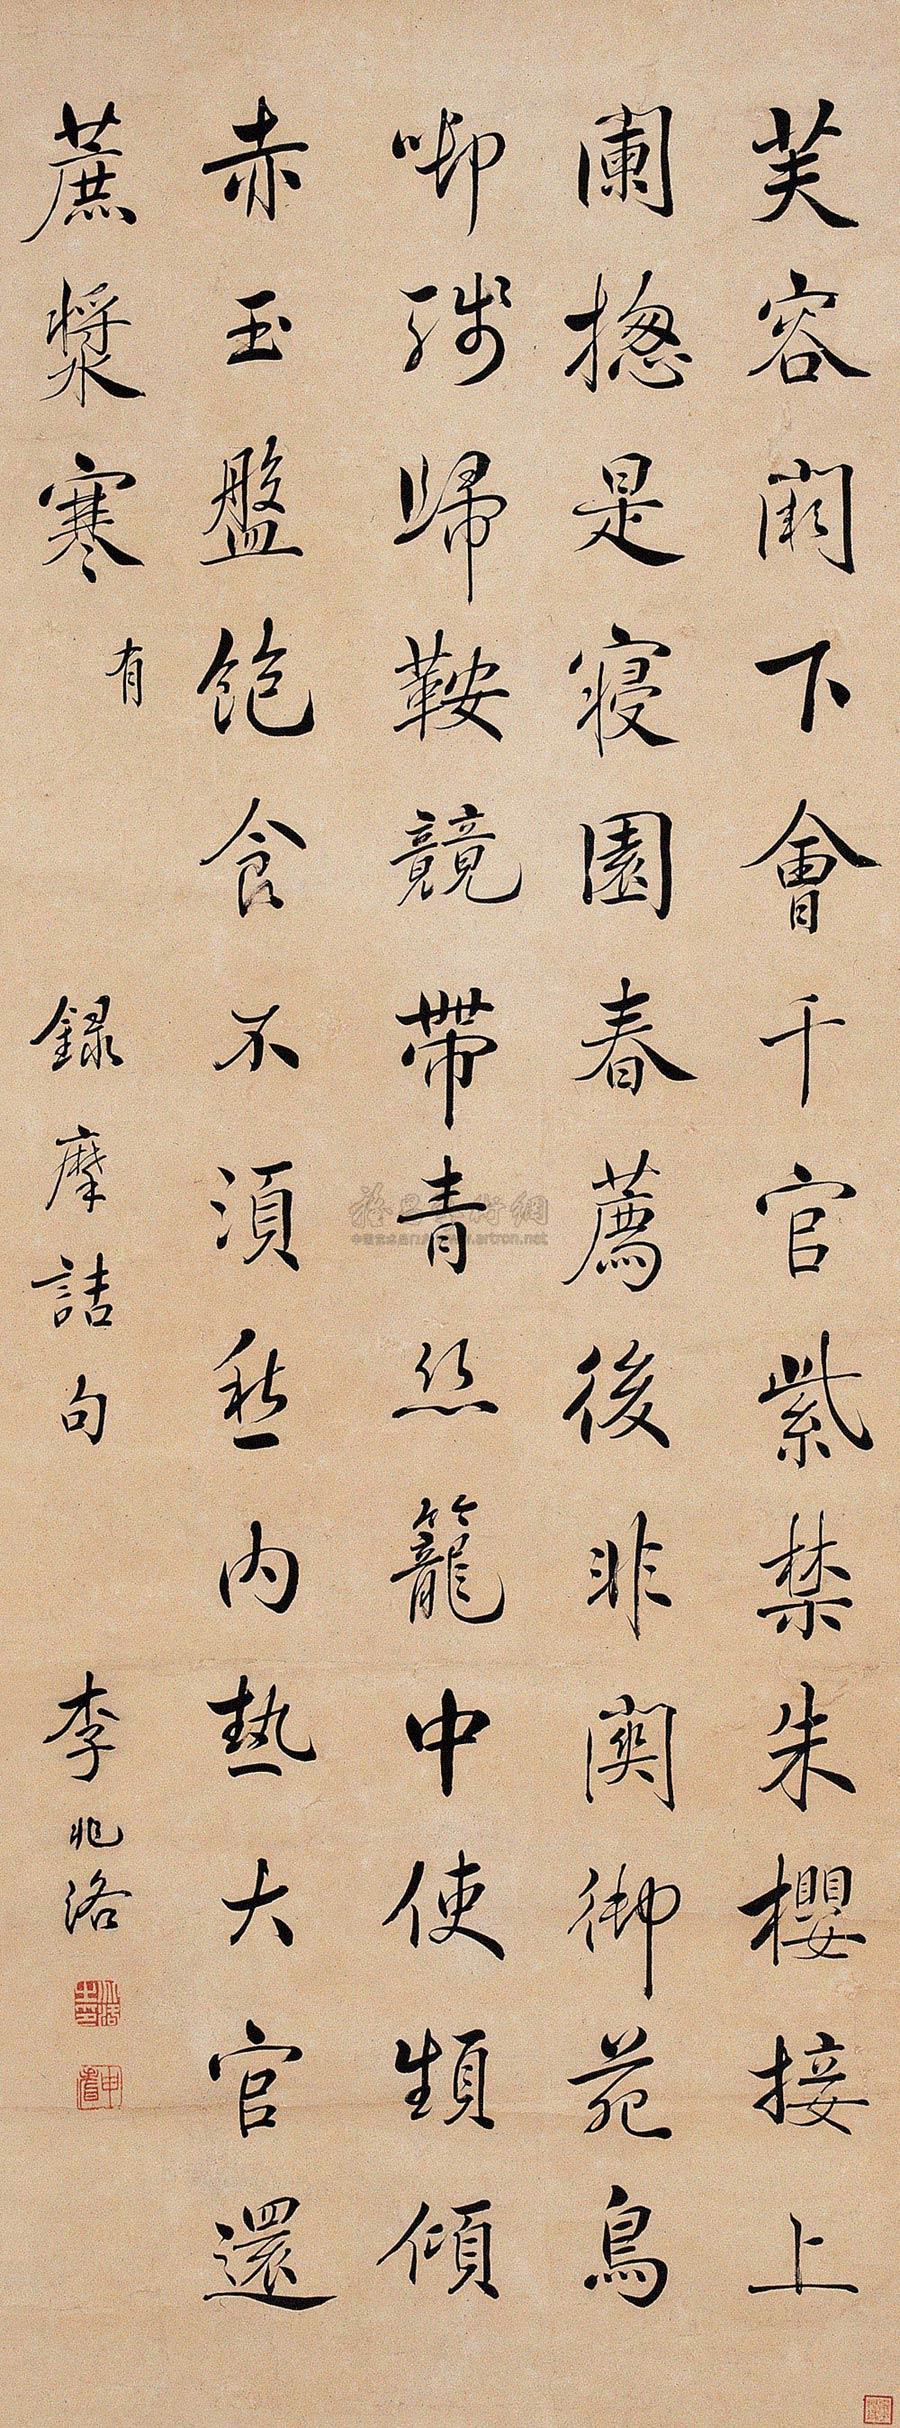 芙容闕下會千官紫禁朱櫻接上
闌揔是寢園春薦後非關御苑鳥
啣殘歸鞍競帶青絲籠中使頻傾
赤玉盤飽食不須愁內熱大官還
蔗漿寒有
録摩詰句
李兆洛